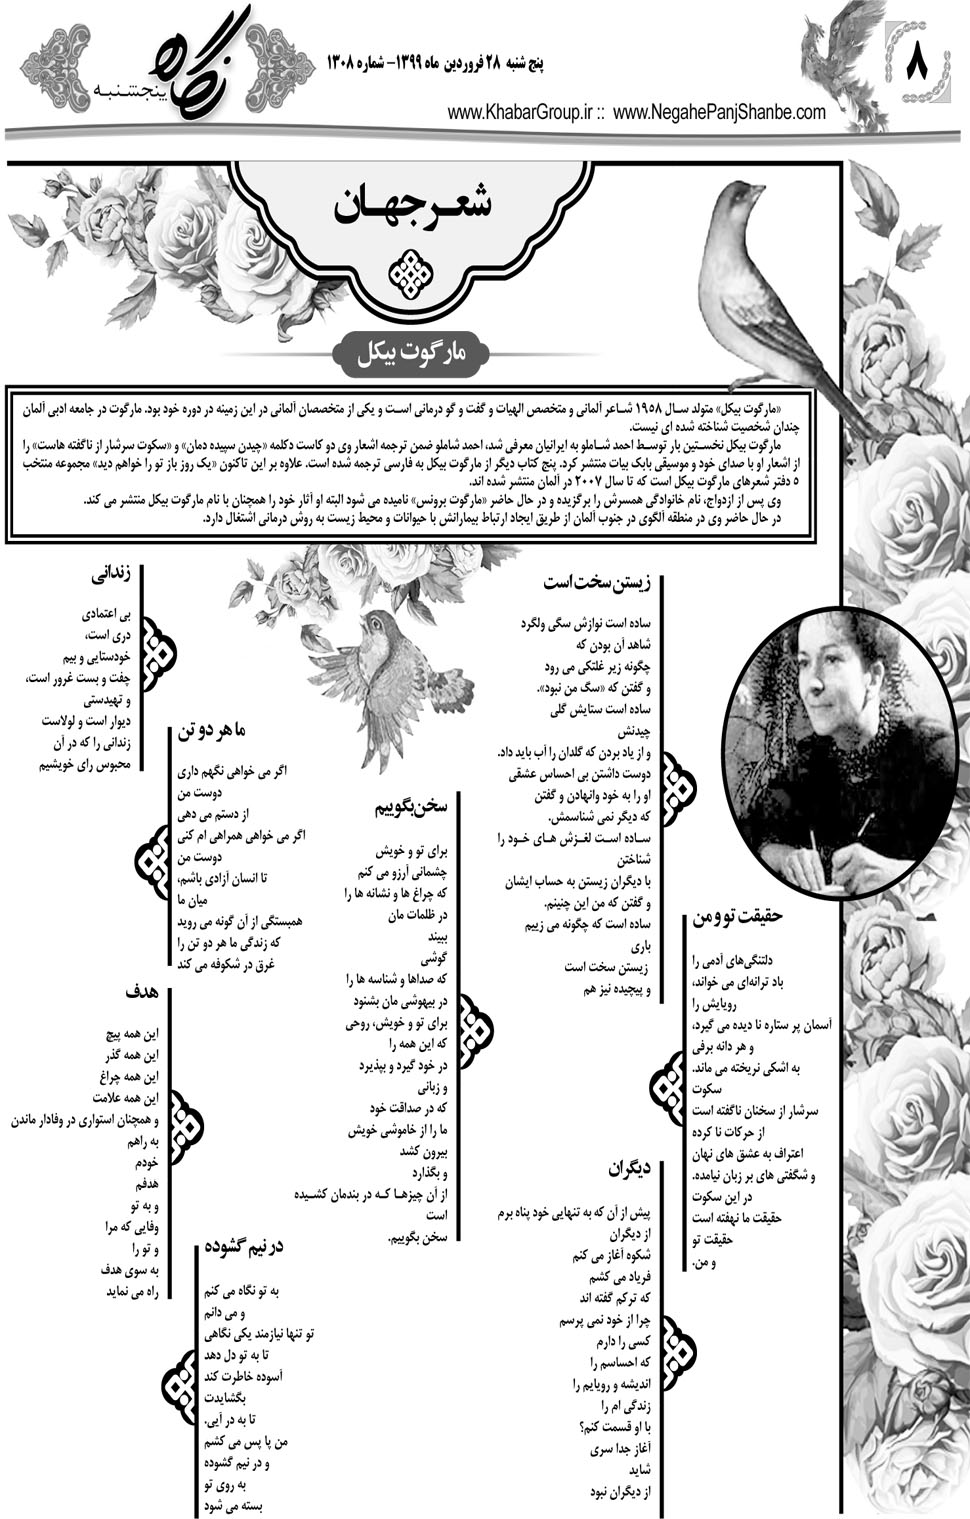 ۸
پنج شنبه ۲۸ فروردین ماه ۱۳۹۹- شماره ۱۳۰۸
نگاه
پنجشنبه
www.KhabarGroup.ir :: www.NegahePanjShanbe.com
شعر جهان
مارگوت بیکل
«مارگوت بیکل» متولد سال ۱۹۵۸ شاعر آلمانی و متخصص الهیات و گفت و گو درمانی است و یکی از متخصصان آلمانی در این زمینه در دوره خود بود. مارگوت در جامعه ادبی آلمان
چندان شخصیت شناخته شده ای نیست.
مارگوت بیکل نخستین بار توسط احمد شاملو به ایرانیان معرفی شد، احمد شاملو ضمن ترجمه اشعار وی دو کاست دکلمه «چیدن سپیده دمان» و «سکوت سرشار از ناگفته هاست» را
از اشعار او با صدای خود و موسیقی بابک بیات منتشر کرد. پنج کتاب دیگر از مارگوت بیکل به فارسی ترجمه شده است. علاوه بر این تاکنون «یک روز باز تو را خواهم دید» مجموعه منتخب
۵ دفتر شعرهای مارگوت بیکل است که تا سال ۲۰۰۷ در آلمان منتشر شده اند.
وی پس از ازدواج، نام خانوادگی همسرش را برگزیده و در حال حاضر «مارگوت برونس» نامیده می شود البته او آثار خود را همچنان با نام مارگوت بیکل منتشر می کند.
در حال حاضر وی در منطقه آلگوی در جنوب آلمان از طریق ایجاد ارتباط بیمارانش با حیوانات و محیط زیست به روش درمانی اشتغال دارد.
حقیقت تو و من
دلتنگی‌های آدمی را
باد ترانه‌ای می خواند،
رویایش را
آسمان پر ستاره نا دیده می گیرد،
و هر دانه برفی
به اشکی نریخته می ماند.
سکوت
سرشار از سخنان ناگفته است
از حرکات نا کرده
اعتراف به عشق های نهان
و شگفتی های بر زبان نیامده.
در این سکوت
حقیقت ما نهفته است
حقیقت تو
و من.
زیستن سخت است
ساده است نوازش سگی ولگرد
شاهد آن بودن که
چگونه زیر غلتکی می رود
و گفتن که «سگ من نبود».
ساده است ستایش گلی
چیدنش
و از یاد بردن که گلدان را آب باید داد.
دوست داشتن بی احساس عشقی
او را به خود وانهادن و گفتن
که دیگر نمی شناسمش.
ساده است لغزش های خود را
شناختن
با دیگران زیستن به حساب ایشان
و گفتن که من این چنینم.
ساده است که چگونه می زییم
باری
زیستن سخت است
و پیچیده نیز هم
دیگران
پیش از آن که به تنهایی خود پناه برم
از دیگران
شکوه آغاز می کنم
فریاد می کشم
که ترکم گفته اند
چرا از خود نمی پرسم
کسی را دارم
که احساسم را
اندیشه و رویایم را
زندگی ام را
با او قسمت کنم؟
آغاز جدا سری
شاید
از دیگران نبود
سخن بگوییم
برای تو و خویش
چشمانی آرزو می کنم
که چراغ ها و نشانه ها را
در ظلمات مان
ببیند
گوشی
که صداها و شناسه ها را
در بیهوشی مان بشنود
برای تو و خویش، روحی
که این همه را
در خود گیرد و بپذیرد
و زبانی
که در صداقت خود
ما را از خاموشی خویش
بیرون کشد
و بگذارد
از آن چیزها که در بندمان کشیده
است
سخن بگوییم.
زندانی
بی اعتمادی
دری است،
خودستایی و بیم
چفت و بست غرور است،
و تهیدستی
دیوار است و لولاست
زندانی را که در آن
محبوس رای خویشیم
ما هر دو تن
اگر می خواهی نگهم داری
دوست من
از دستم می دهی
اگر می خواهی همراهی ام کنی
دوست من
تا انسان آزادی باشم،
میان ما
همبستگی از آن گونه می روید
که زندگی ما هر دو تن را
غرق در شکوفه می کند
هدف
این همه پیچ
این همه گذر
این همه چراغ
این همه علامت
و همچنان استواری در وفادار ماندن
به راهم
خودم
هدفم
و به تو
وفایی که مرا
و تو را
به سوی هدف
راه می نماید
در نیم گشوده
به تو نگاه می کنم
و می دانم
تو تنها نیازمند یکی نگاهی
تا به تو دل دهد
آسوده خاطرت کند
بگشایدت
تا به در آیی.
من پا پس می کشم
و در نیم گشوده
به روی تو
بسته می شود